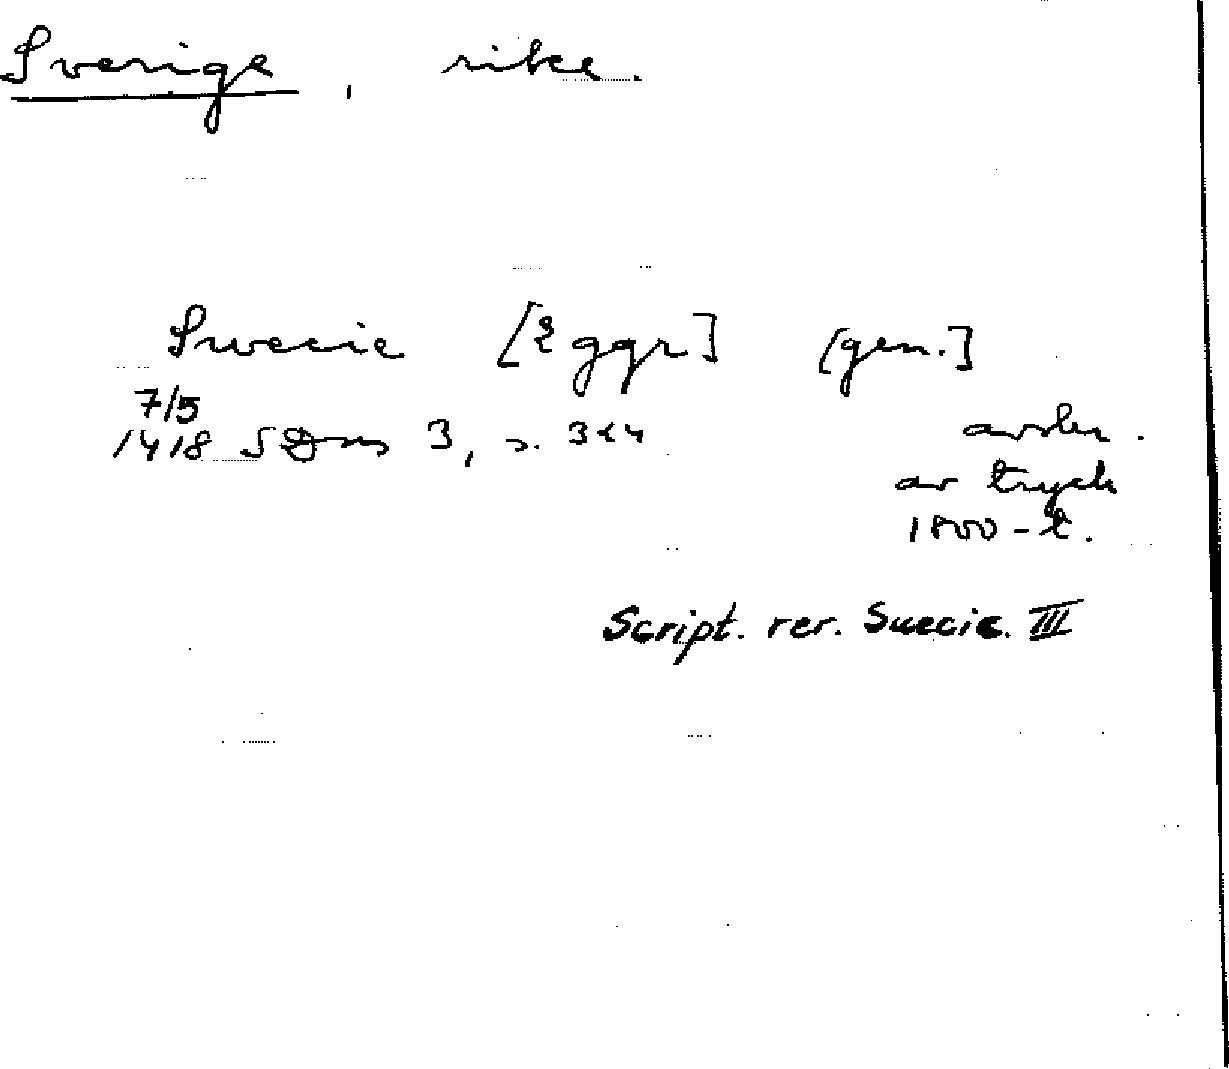 Sverige, rike.
Swecie [2 ggr] [gen.]
7/5
1418 SDns 3, s. 324
avskr.
av tryck
1800-t.
Script. rer. Suecic. III